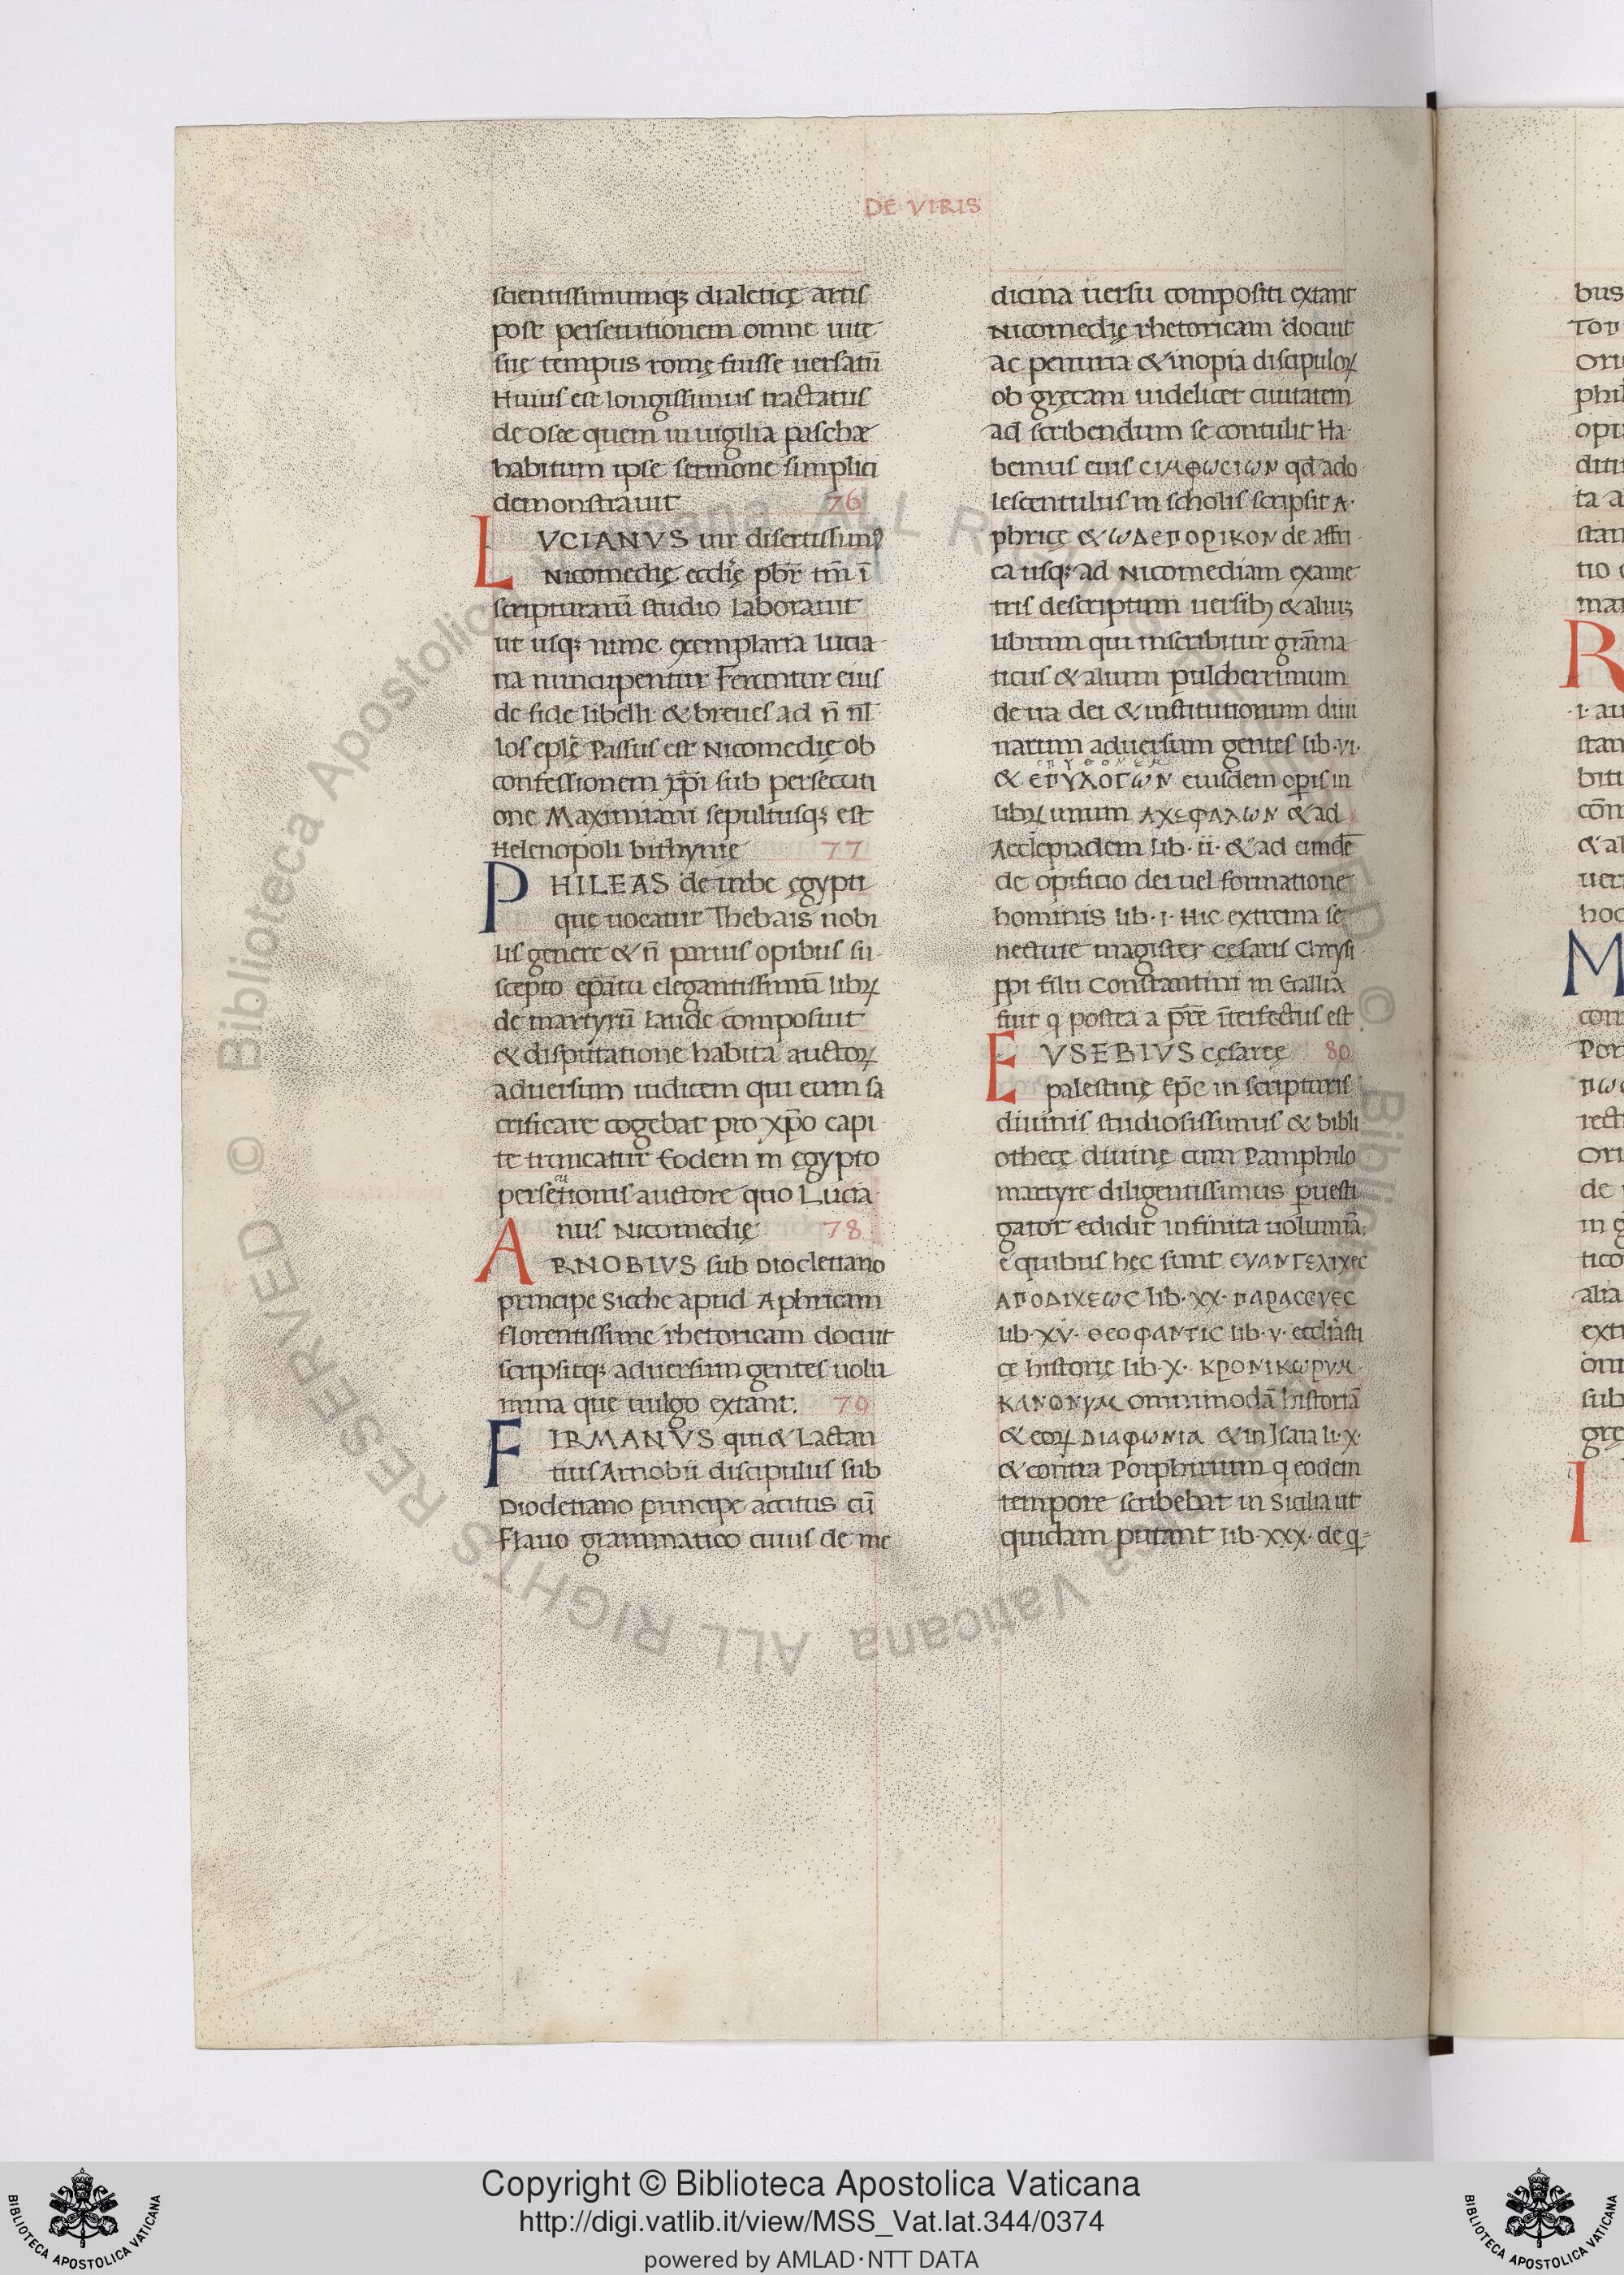 DE VIRIS
scientissimumq; dialeticę artis
post persecutionem omne uite
suę tempus romę fuisse uersatū
Huius est longissimus tractatus
de Osee quem in uigilia paschæ
habitum ipse sermone simplici
demonstrauit 76
LVCIANVS uir disertissimꝰ
Nicomedię ecclīę pbr̄ tm̄ ī
scripturarū studio laborauit
ut usq; nunc exemplaria lucia
na nuncupentur Feruntur eius
de fide libelli & breues ad n̄ nl̄
los eplę̄ Passus est Nicomedię ob
confessionem xp̄i sub persecuti
one Maximiani sepultusq; est
Helenopoli bithynie 77
PHILEAS de urbe ęgypti
quę uocatur Thebais nobi
lis genere & n̄ paruis opibus su
scepto ep̄atu elegantissimū libꝝ
de martyrū laude composuit
& disputatione habita auctoꝝ
aduersum iudicem qui eum sa
crificare cogebat pro xp̄o capi
te truncatur Eodem in ęgypto
persecutionis auctore quo Lucia
nus Nicomedię 78
ARNOBIVS sub Diocletiano
principe Sicche apud Aphricam
florentissime rhetoricam docuit
scripsitq; aduersum gentes uolu
mina que uulgo extant. 79
FIRMANVS qui & Lactan
tius Arnobii discipulus sub
Diocletiano principe accitus cū
Flauo grammatico cuius de me
dicina uersu compositi extant
Nicomedię rhetoricam docuit
ac penuria & inopia discipuloꝝ
ob gręcam uidelicet ciuitatem
ad scribendum se contulit Ha
bemus eius CΙΜΦωCΙωΝ qd ado
lescentulus in scholis scripsit A
phricę & ωΔΕΠΟΡΙΚΟΝ de affri
ca usq; ad Nicomediam exame
tris descriptum uersibꝫ & aliuꝫ
librum qui inscribitur grāma
ticus & alium pulcherrimum
de ira dei & institutionum diui
narum aduersum gentes lib·VI·
& ΕΠΥΛΟΓωΝ eiusdem opis in
libꝝ unum ΑΧΕΦΑΛωΝ & ad
Asclepiadem lib·ii· & ad eundē
de opificio dei uel formatione
hominis lib·i· Hic extrema se
nectute magister cęsaris Chrysi
ppi filii Constantini in Gallia
fuit q postea a pr̄e īterfectus est
EVSEBIVS cęsareę 80
palestinę Ep̄c in scripturis
diuinis studiosissimus & bibli
othecę diuinę cum Pamphilo
martyre diligentissimus puesti
gator edidit infinita uolumīa
e quibus hęc sunt ΕΥΑΝΓΕΛΙΧΕC
ΑΠΟΔΙΧΕωC lib·XX· ΠΑΡΑCCΥΕC
lib·XV· ΘΕΟΦΑΝΤΙC lib·V· ecclīasti
cę historię lib·X· ΚΡΟΝΙΚωΡΥΜ
ΚΑΝΟΝΥΜ omnimodā historiā
& eoꝝ ΔΙΑΦωΝΙΑ & in Isaia li·X·
& contra Porphirium q eodem
tempore scribebat in Sicilia ut
quidam putant lib·XXX· de q=
Copyright © Biblioteca Apostolica Vaticana
http://digi.vatlib.it/view/MSS_Vat.lat.344/0374
powered by AMLAD·NTT DATA